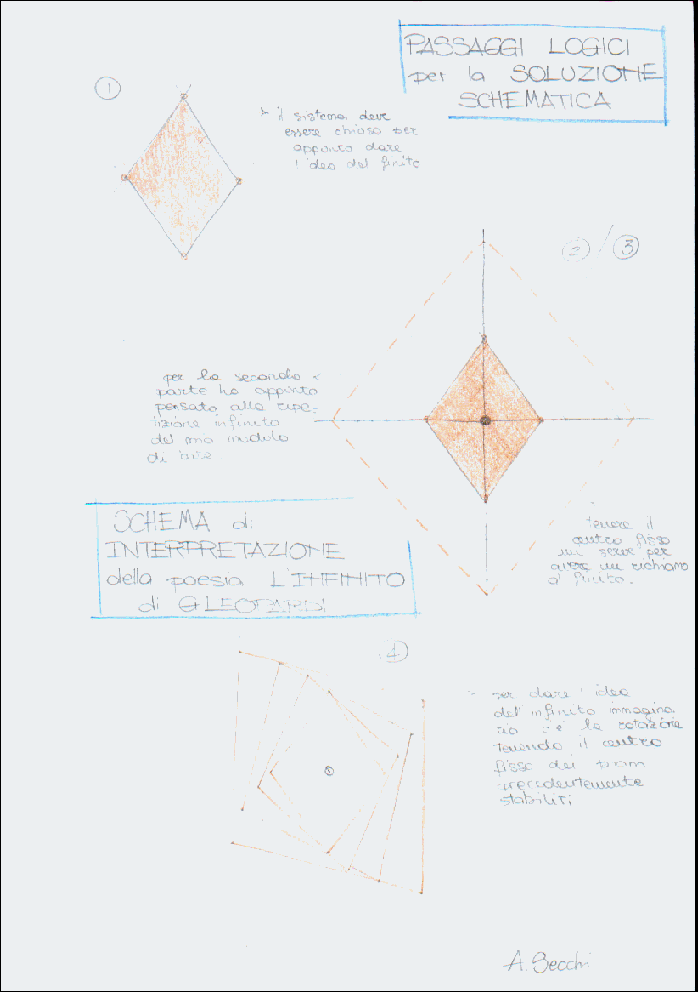 PASSAGGI LOGICI
per la SOLUZIONE
SCHEMATICA
1
il sistema deve
essere chiuso per
appunto dare
l'idea del finito
2 / 3
per la seconda
parte ho appunto
pensato alla ripe-
tizione infinito
del mio modulo
di base
SCHEMA di
INTERPRETAZIONE
della poesia L'INFINITO
di G LEOPARDI
tenere il
centro fisso
mi serve per
avere un richiamo
al finito.
4
per dare l'idea
del'infinito immagina
rio c'è la rotazione
tenendo il centro
fisso dei
precedentemente
stabiliti
A. Secchi